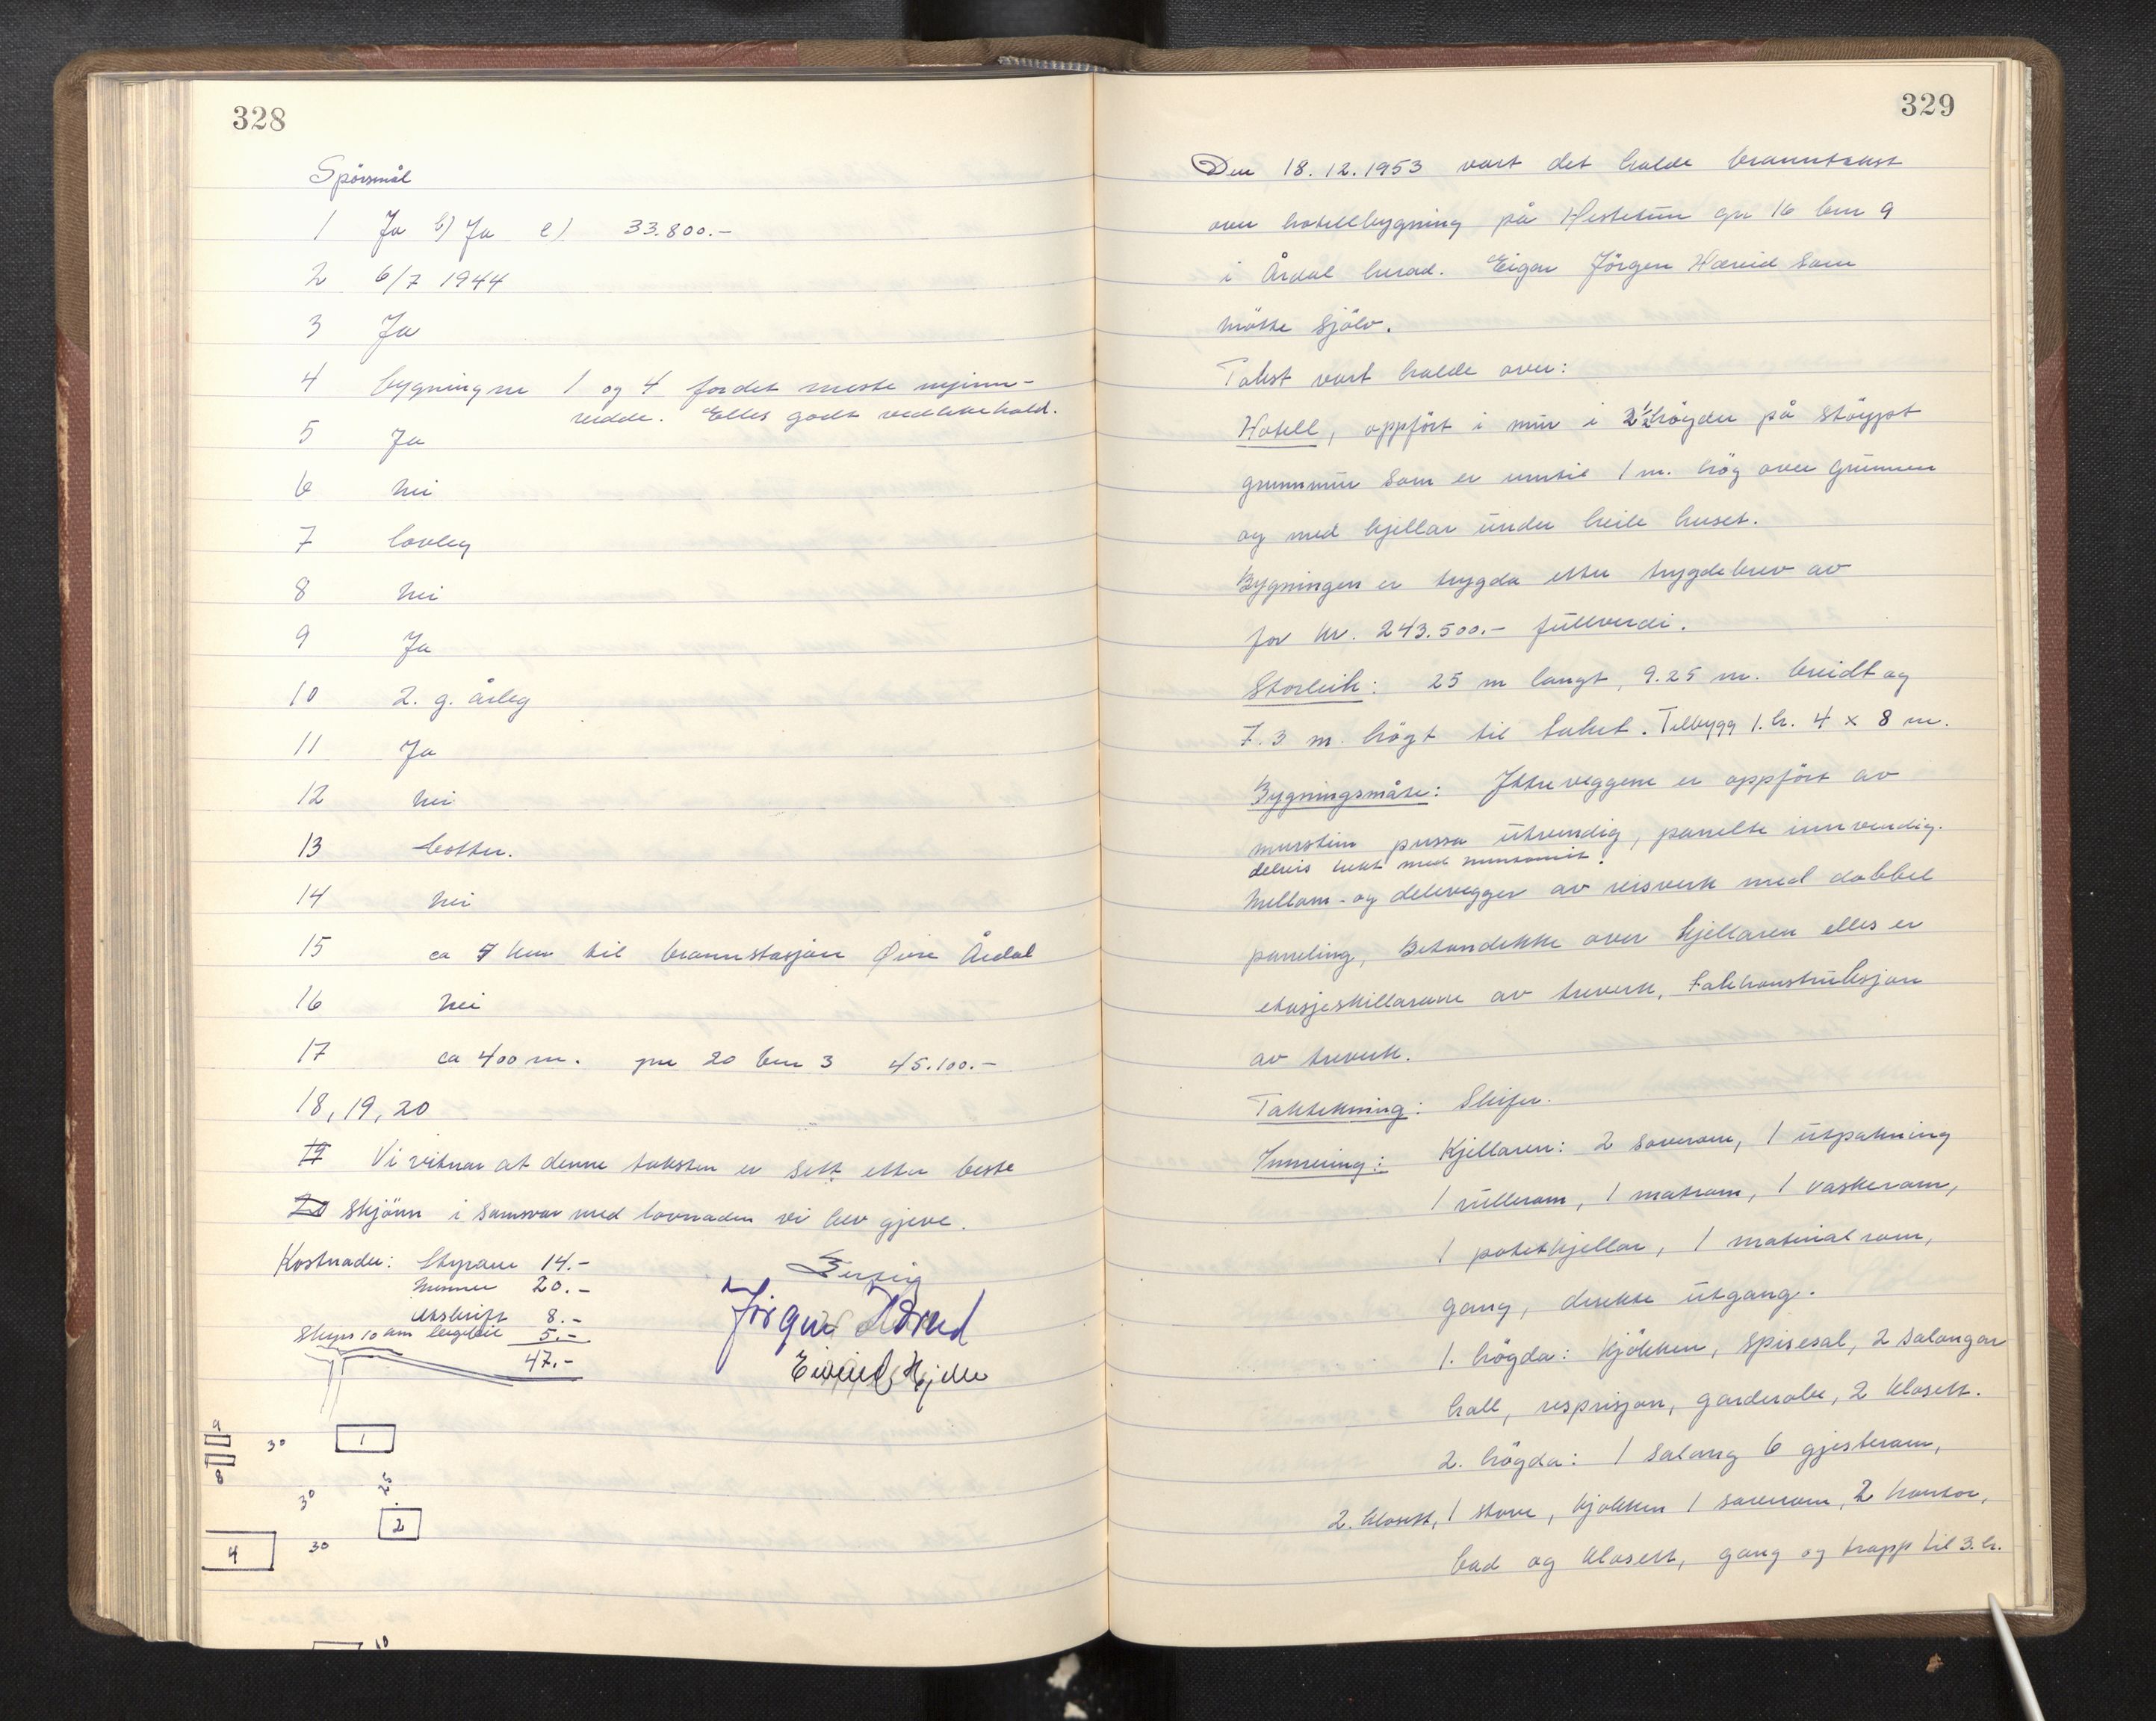 328
Spörsmål
1 Ja b) Ja c) 33.800.-
2 6/7 1944
3 Ja
4 bygningne 1 og 4 for det meste nyinn-
reidde. Elles godt vedlikehald.
5 Ja
6 nei
7 lovleg
8 nei
9 Ja
10 2. g. årleg
11 Ja
12 nei
13 bötter.
14 nei
15 ca 7 km til brannstasjon Øvre Årdal
16 nei
17 ca 400 m. gnr 20 bnr 3 45.100.-
18, 19, 20
19 Vi vitnar at denne taksten er sett etter beste
20 skjönn i samsvar med lovnaden vi hev gjeve.
Kostnader: Styraren 14.-
Menner 20.-
Utskrift 8.-
Skyss 10 km 5.-
47.-
Eivind Hjelle
9
30
1
8
30
25
2
4
30
10
329
Den 18.12.1953 vart det halde branntakst
over hotellbygning på Hestetun gnr 16 bnr 9
i Årdal herad. Eigar Jörgen Hæreid som
mötte sjölv.
Takst vart halde over:
Hotell, oppfört i mur i 2 1/2 högder på stöypt
grunnmur som er umtil 1 m. hög over grunnen
og med kjellar under heile huset.
Bygningen er trygda etter trygdebrev av
for kr. 243.500.- fullverdi.
Storleik: 25 m langt, 9.25 m. breidt og
7.3 m. högt til taket. Tilbygg 1. h. 4 x 8 m.
Bygningsmåte: Ytterveggene er oppfört av
murstein pussa utvendig, panelte innvendig.
delvis med
Mellom- og delevegger av reisverk med dobbel
paneling, Betondekke over kjellaren elles er
etasjeskillarane av treverk, takkonstruksjon
av treverk.
Taktekning: Skifer.
Innreiing: Kjellaren: 2 soverom, 1 utpakning
1 rullerom, 1 matrom, 1 vaskerom,
1 potetkjellar, 1 material rom,
gang, direkte utgang.
1. högda: Kjökken, spisesal, 2 salongar
hall, respsisjon, garderobe, 2 klosett.
2. högda: 1 salong 6 gjesterom,
2. klosett, 1 stove, kjökken 1 soverom, 2 kontor,
bad og klosett, gang og trapp til 3. h.